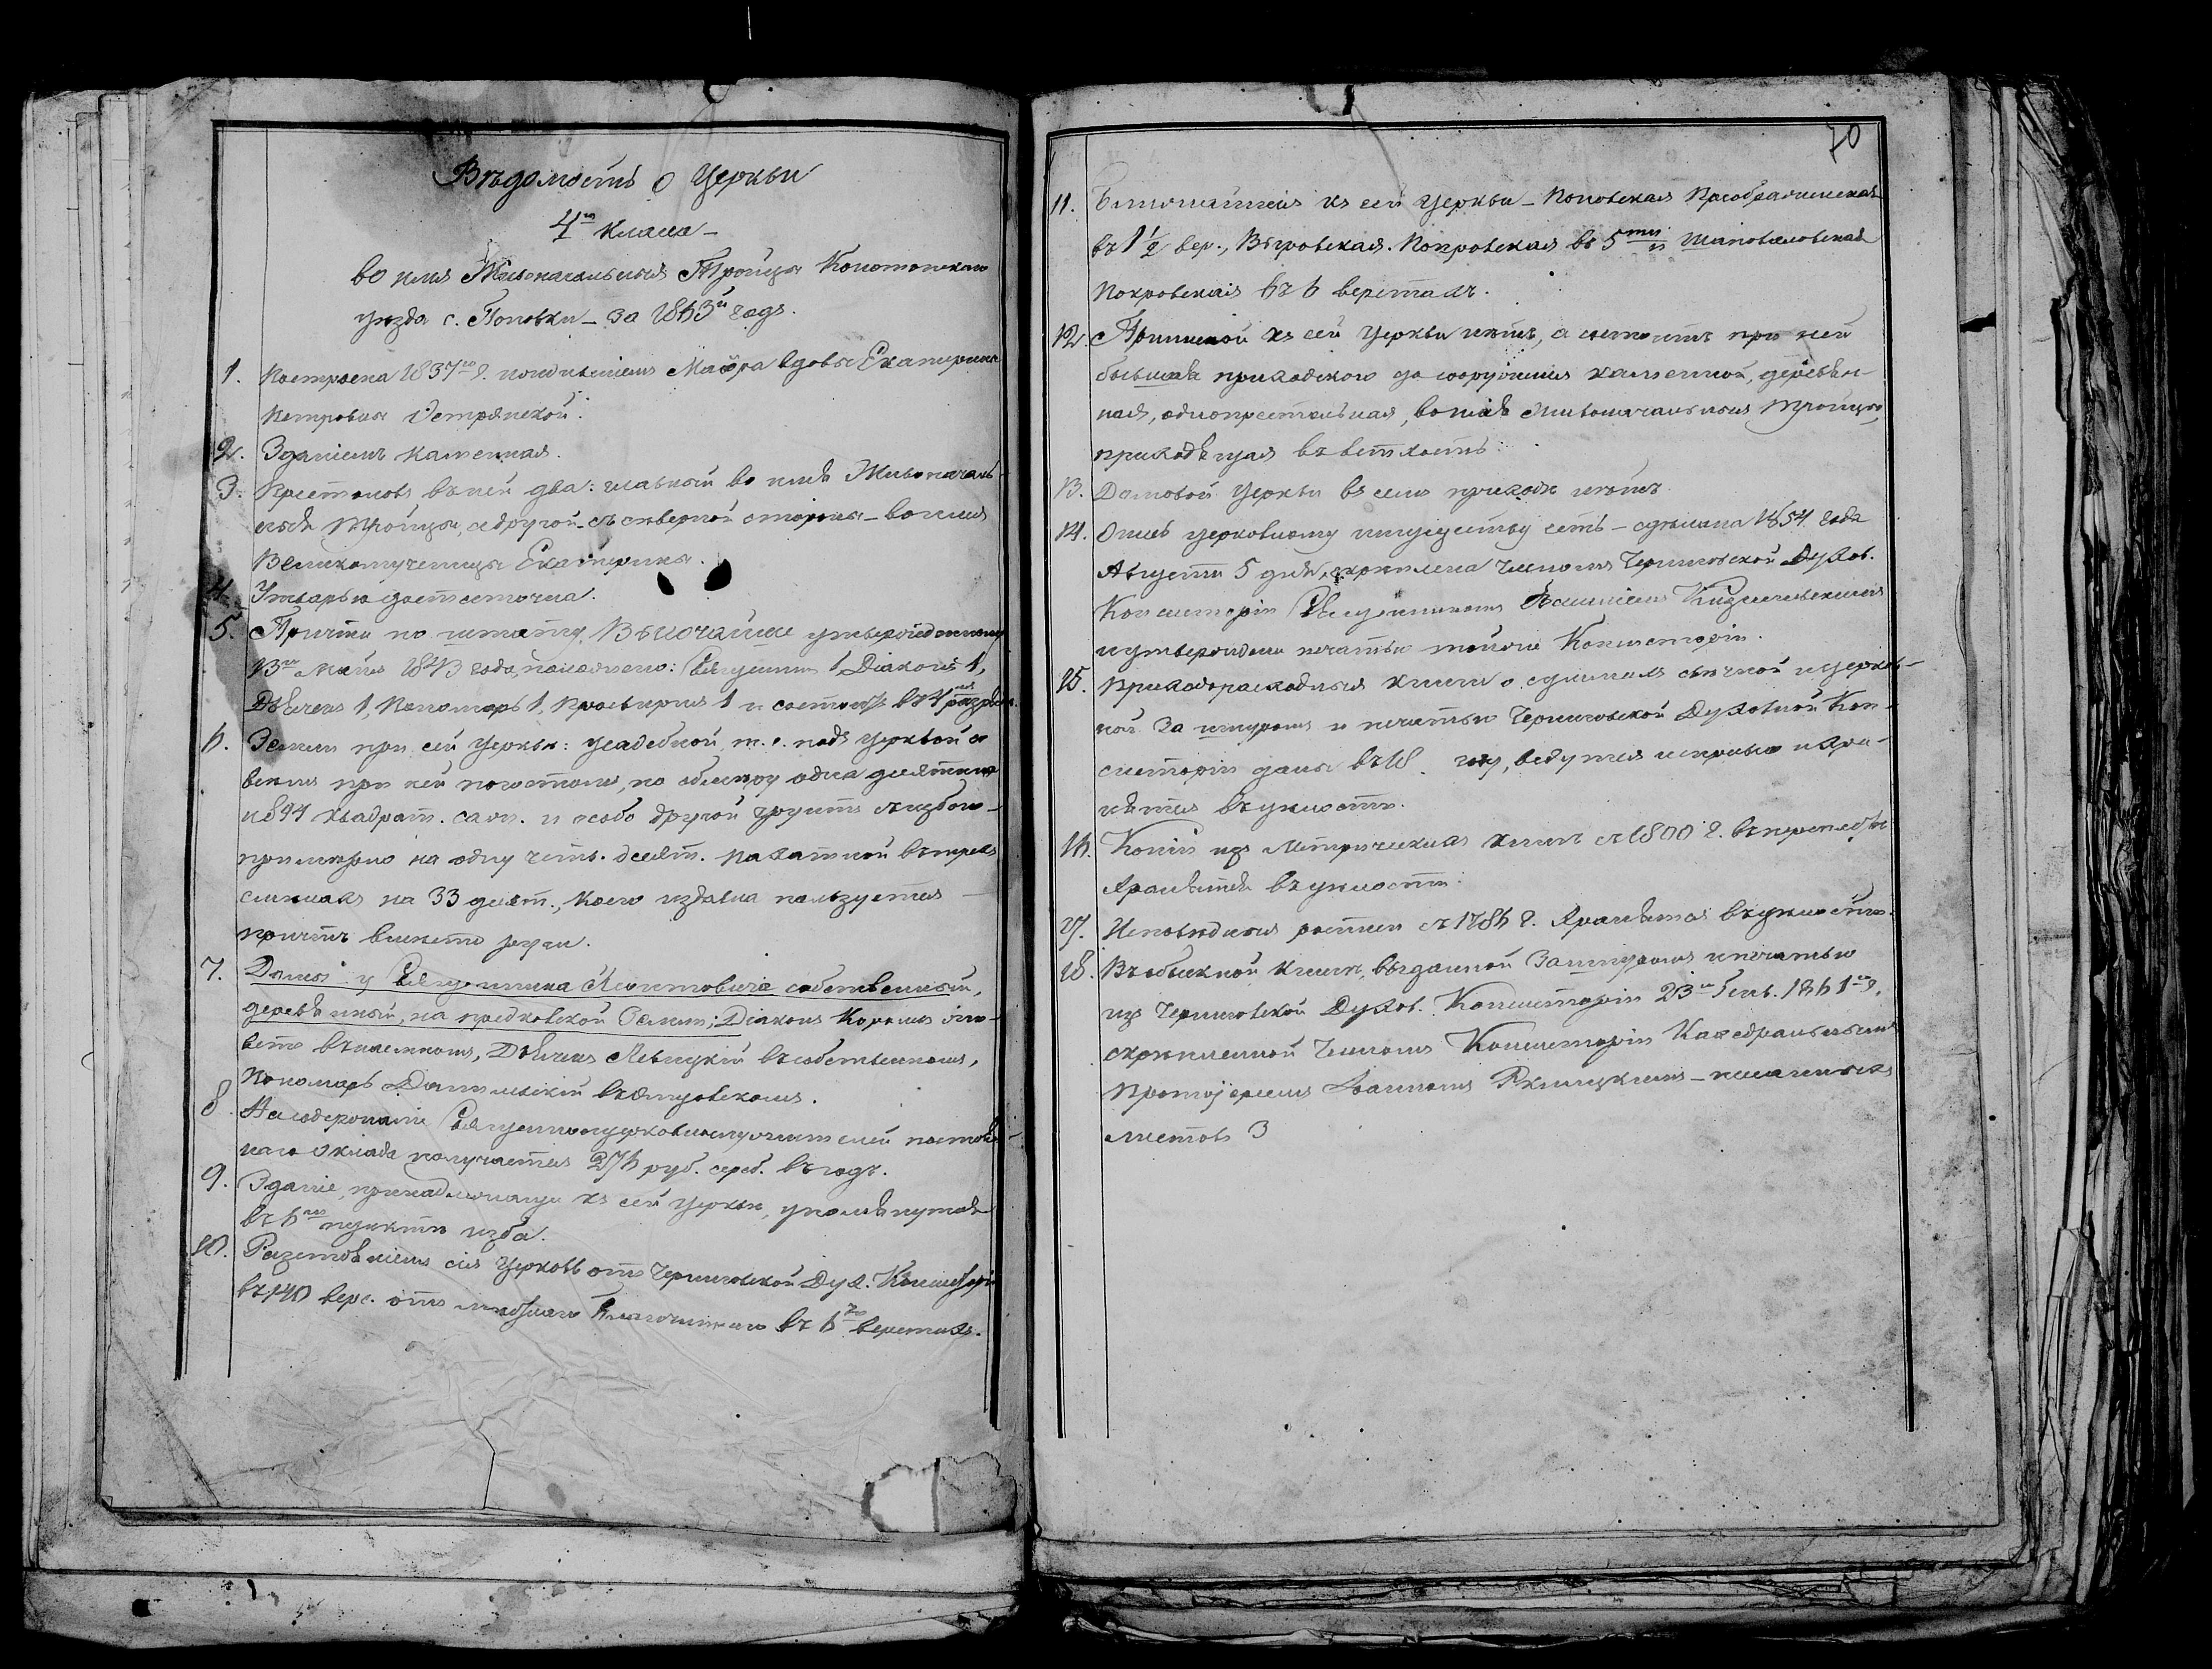 Вѣдомость о Церкви
4го класса –
во имя Живоначальныя Тройцы Конотопскаго
уѣзда с. Поповки – за 1863й годъ.
1. Построена 1837го г. иждивеніемъ Маіора вдовы Екатерины
Петровны
2. Зданіемъ каменная.
3. Престоловъ въ ней два: главный во имя Живоначаль-
ныя Тройцы, а другой – съ сѣверной стороны – во имя
Великомученицы Екатерины.
4. Утварью достаточна.
5. Причта по штату, Высочайше утвержденному
года, положено: Священник 1, Діаконъ 1,
Дьячекъ 1, Пономарь 1, Просвирня 1 и состоитъ въ разрядѣ.
6. Земли при сей Церкви: усадебной, т. е. подъ Церквой и
вкругъ при ней погостомъ, по обмеру одна десятина
и 894 квадрат. саж. и особо другой грунтъ с избою –
примѣрно на одну четв. десят. пахатной въ трехъ
смѣнахъ на 33 десят., коею издавна пользуется –
причтъ вмѣсто руги.
7. Домы: у Священника Леонтовича собственный,
деревянный, на предковской Земли; Діаконъ жи-
ветъ въ наемномъ, Дьячекъ Левицкій въ собственномъ,
Пономарь въ отцовскомъ.
8. На содержаніе Священноцерковнослужителей постоян-
наго оклада получается 276 руб. сереб. въ годъ.
9. Зданіе, принадлежащее къ сей Церкви, упомянутая
въ 6мъ пунктѣ изба.
10. Разстояніемъ сія Церковь отъ Черниговской Дух. Консисторіи
въ 140 верс. отъ мѣстнаго Благочиннаго въ 6ти верстахъ.
70
11. Ближайшія къ сей Церкви – Поповская Преображенская
въ 1 1/2 вер., Вѣровская Покровская въ 5ти и Шаповаловская
Покровская въ 6 верстахъ.
12. Приписной къ сей Церкви нѣтъ, а состоитъ при ней
бывшая приходскою до сооруженія каменной, деревян-
ная, однопрестольная, во имя Живоначальныя Тройцы,
приходящая въ ветхость.
13. Домовой Церкви въ семъ приходѣ нѣтъ.
14. Опись церковному имуществу есть – сдѣлана 1854 года
Августа 5 дня, скрѣплена Членомъ Черниговской Духов.
Консисторіи Священникомъ Василіемъ
и утверждена печатью тойже Консисторіи.
15. Приходорасходныя книги о суммахъ свѣчной и церков-
ной за шнуромъ и печатью Черниговской Духовной Кон-
систоріи даны въ 18 году, ведутся исправно и хра-
нятся въ цѣлости.
16. Копіи изъ Метрическихъ книгъ съ 1800 г. въ переплетѣ
хранятся въ цѣлости.
17. Исповѣдныя росписи съ 1786 г. хранятся въ цѣлости.
18. Въ обыскной книгѣ, выданной за шнуромъ и печатью
изъ Черниговской Духов. Консисторіи 23го Генв. 1861го г.
скрѣпленной Членомъ Консисторіи Каѳедральнымъ
Протоіереемъ Іоанномъ – писанныхъ
листовъ 3